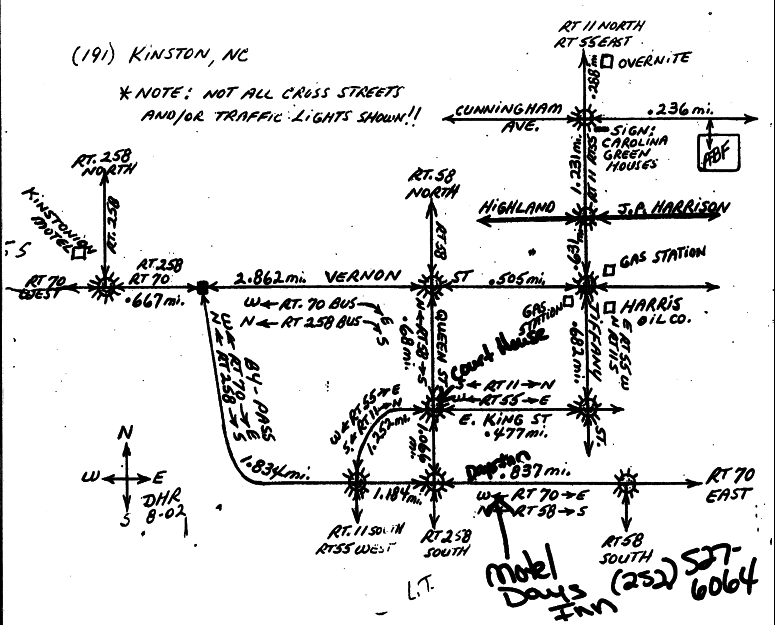 (191) KINSTON, NC
* NOTE: NOT ALL CROSS STREETS
AND/OR TRAFFIC LIGHTS SHOWN!!
RT 11 NORTH
RT 55 EAST
.288 mi.
OVERNITE
CUNNINGHAM
AVE.
.236 mi.
SIGN:
CAROLINA
GREEN
HOUSES
ABF
1.231 mi.
RT 11 RT55
RT. 258
NORTH
RT. 258
KINSTONIAN
MOTEL
RT. 58
NORTH
RT 58
HIGHLAND
J.P. HARRISON
.631 mi.
GAS STATION
RT 70
WEST
RT. 258
RT 70
.667 mi.
2.862 mi.
VERNON
ST
.505 mi.
W ← RT. 70 BUS → E
N ← RT 258 BUS → S
GAS
STATION
HARRIS
OIL CO.
QUEEN ST
N ← RT 58 → S
.68 mi.
TIFFANY
ST.
.682 mi.
E RT 55 W
N RT 11 S
Court House
BY-PASS
W ← RT 70 → E
N ← RT 258 → S
W ← RT 55 → E
S ← RT 11 → N
1.252 mi.
S ← RT 11 → N
W ← RT 55 → E
E. KING ST
.477 mi.
1.066
mi.
1.834 mi.
1.184 mi.
Days Inn
.837 mi.
W ← RT 70 → E
N ← RT 58 → S
RT 70
EAST
N
W
E
S
DHR
8-02
RT. 11 SOUTH
RT 55 WEST
RT 258
SOUTH
RT 58
SOUTH
L.T.
Motel
Days
Inn
(252) 527-
6064